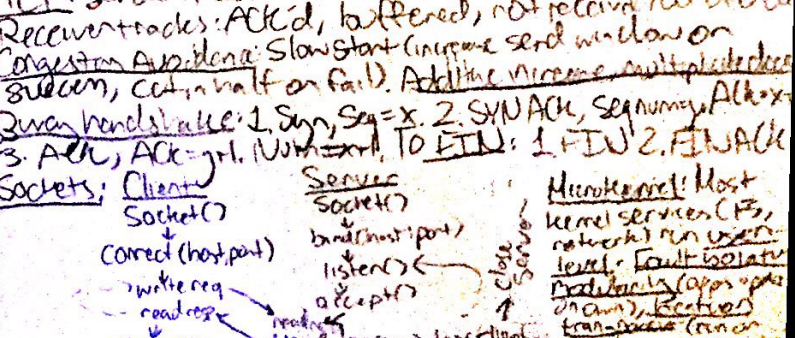 Receiver tracks: ACK'd, buffered, not receive
Congestion Avoidance: Slow Start (increase send window on
success, cut in half on fail). Additive increase, multiplicative
3 way handshake: 1. Syn, Seq=x. 2. SYN ACK, seqnum=y, ACK=x+
3. ACK, ACK=y+1, Num=x+1. To FIN: 1 FIN 2. FINACK
Sockets: Client
Socket()
connect(host, port)
write req
read res
Server
Socket()
bind(host:port)
listen()
accept()
close
server
Microkernel: Most
kernel services (FS,
network) run user
level. Fault isolation
modularity (apps
on own), location
(run on